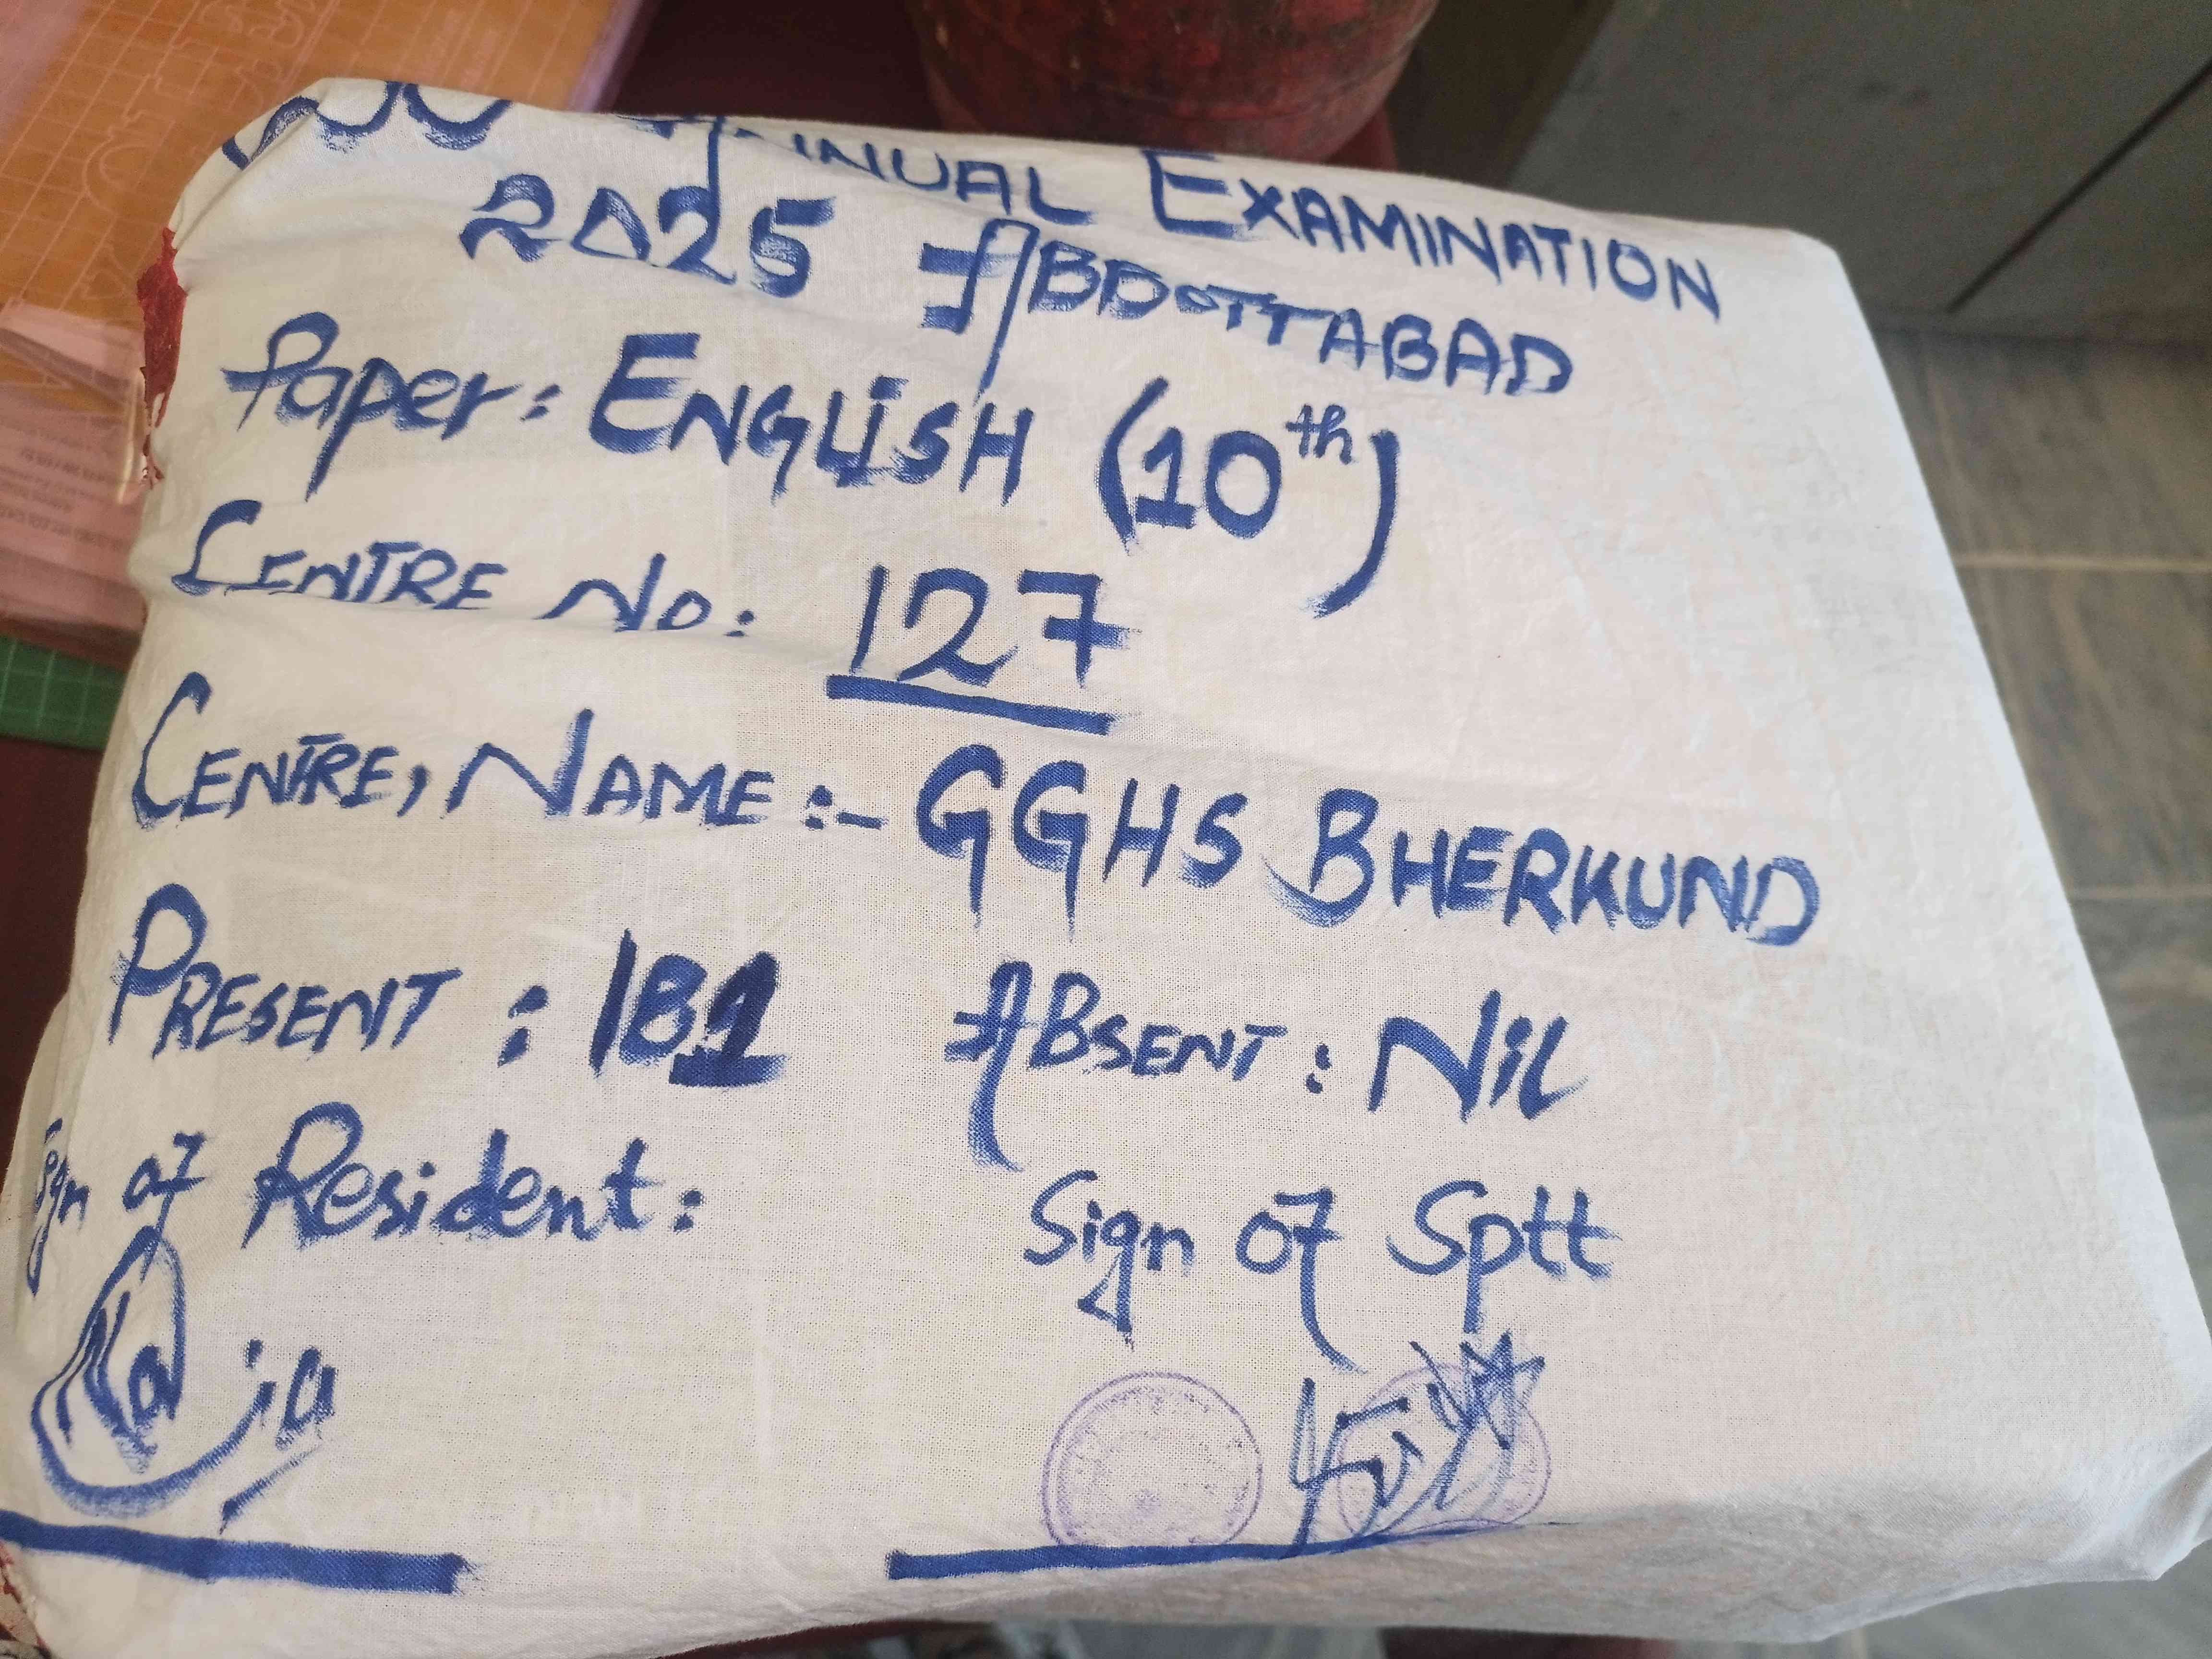 ANNUAL EXAMINATION
2025 ABBOTTABAD
Paper: ENGLISH (10th)
CENTRE No: 127
CENTRE, NAME :- GGHS BHERKUND
PRESENT : 181 ABSENT : Nil
Sign of Resident: Sign of Sptt